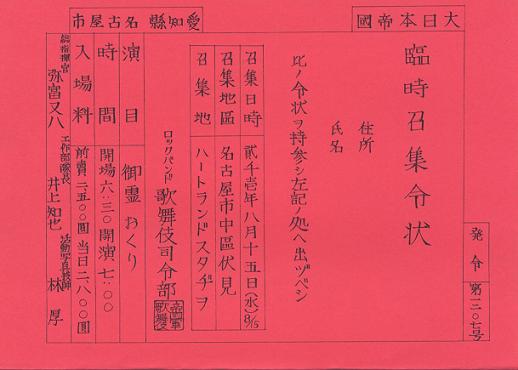 大日本帝國
愛知縣名古屋市
発令 第一三〇七号
臨時召集令状
住所
氏名
此ノ令状ヲ持参シ左記ノ処ヘ出ヅベシ
召集日時 貳千壱年八月十五日(水)8/15
召集地區 名古屋市中區伏見
召集地 ハートランドスタヂヲ
ロックバンド 歌舞伎司令部
演目 御霊おくり
時間 開場六:三〇 開演七:〇〇
入場料 前賣二、五〇〇圓 当日二、八〇〇圓
総指揮官 弥富又八 工作部隊長 井上知也 活動写真技師 林厚